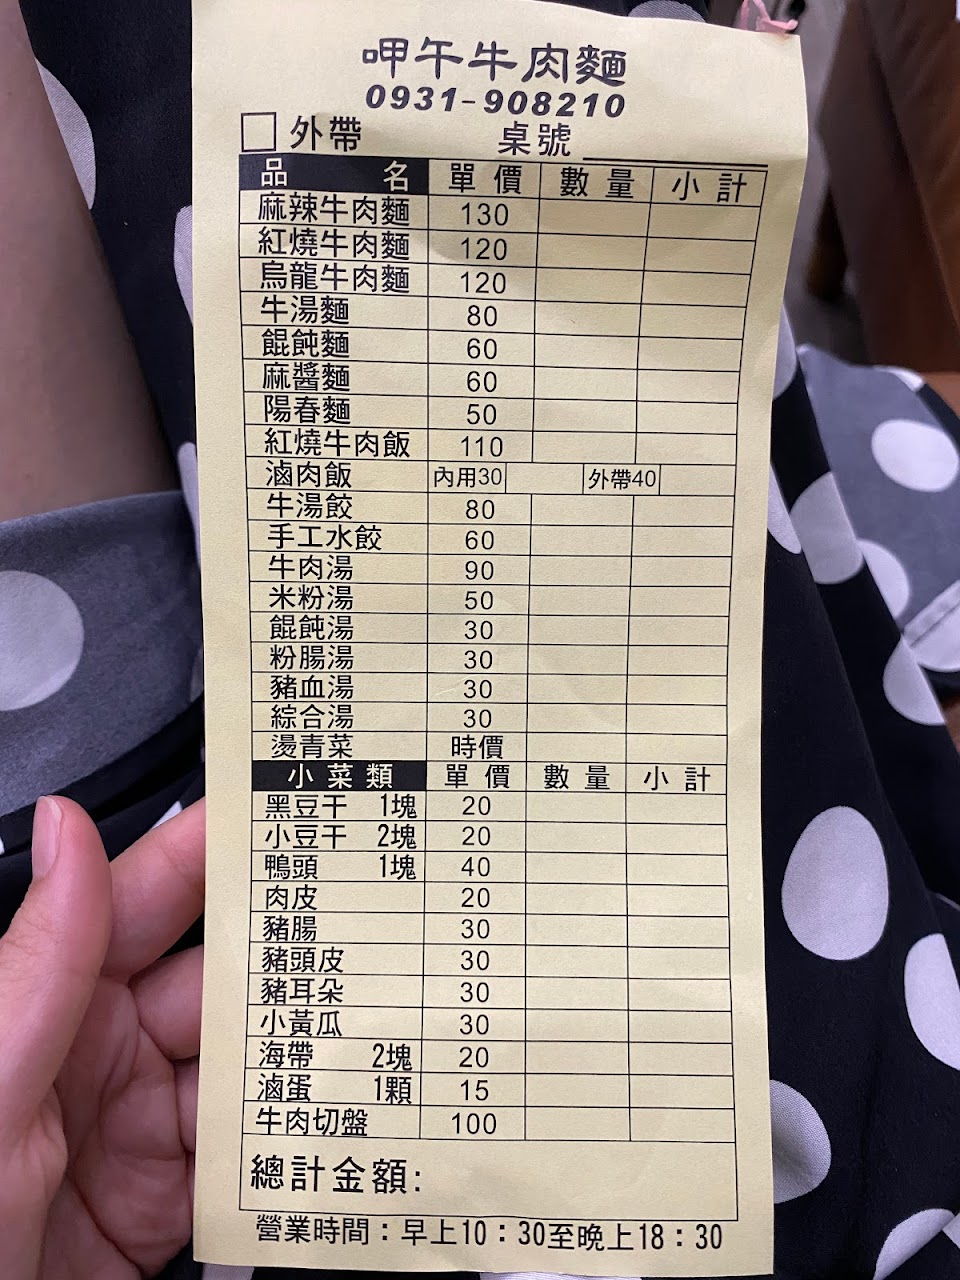 呷午牛肉麵
0931-908210
外帶 桌號
品名 單價 數量 小計
麻辣牛肉麵 130
紅燒牛肉麵 120
烏龍牛肉麵 120
牛湯麵 80
餛飩麵 60
麻醬麵 60
陽春麵 50
紅燒牛肉飯 110
滷肉飯 內用30 外帶40
牛湯餃 80
手工水餃 60
牛肉湯 90
米粉湯 50
餛飩湯 30
粉腸湯 30
豬血湯 30
綜合湯 30
燙青菜 時價
小菜類 單價 數量 小計
黑豆干 1塊 20
小豆干 2塊 20
鴨頭 1塊 40
肉皮 20
豬腸 30
豬頭皮 30
豬耳朵 30
小黃瓜 30
海帶 2塊 20
滷蛋 1顆 15
牛肉切盤 100
總計金額:
營業時間：早上10：30至晚上18：30